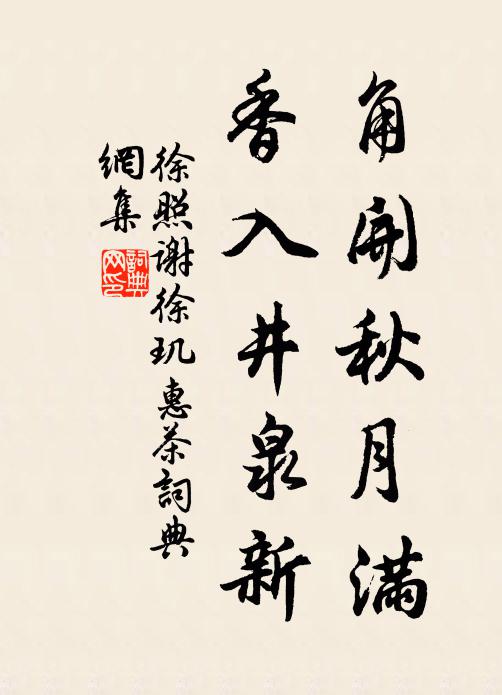 角開秋月满
香入井泉新
徐照谢徐玑惠茶詞典
網集
詞典
网印